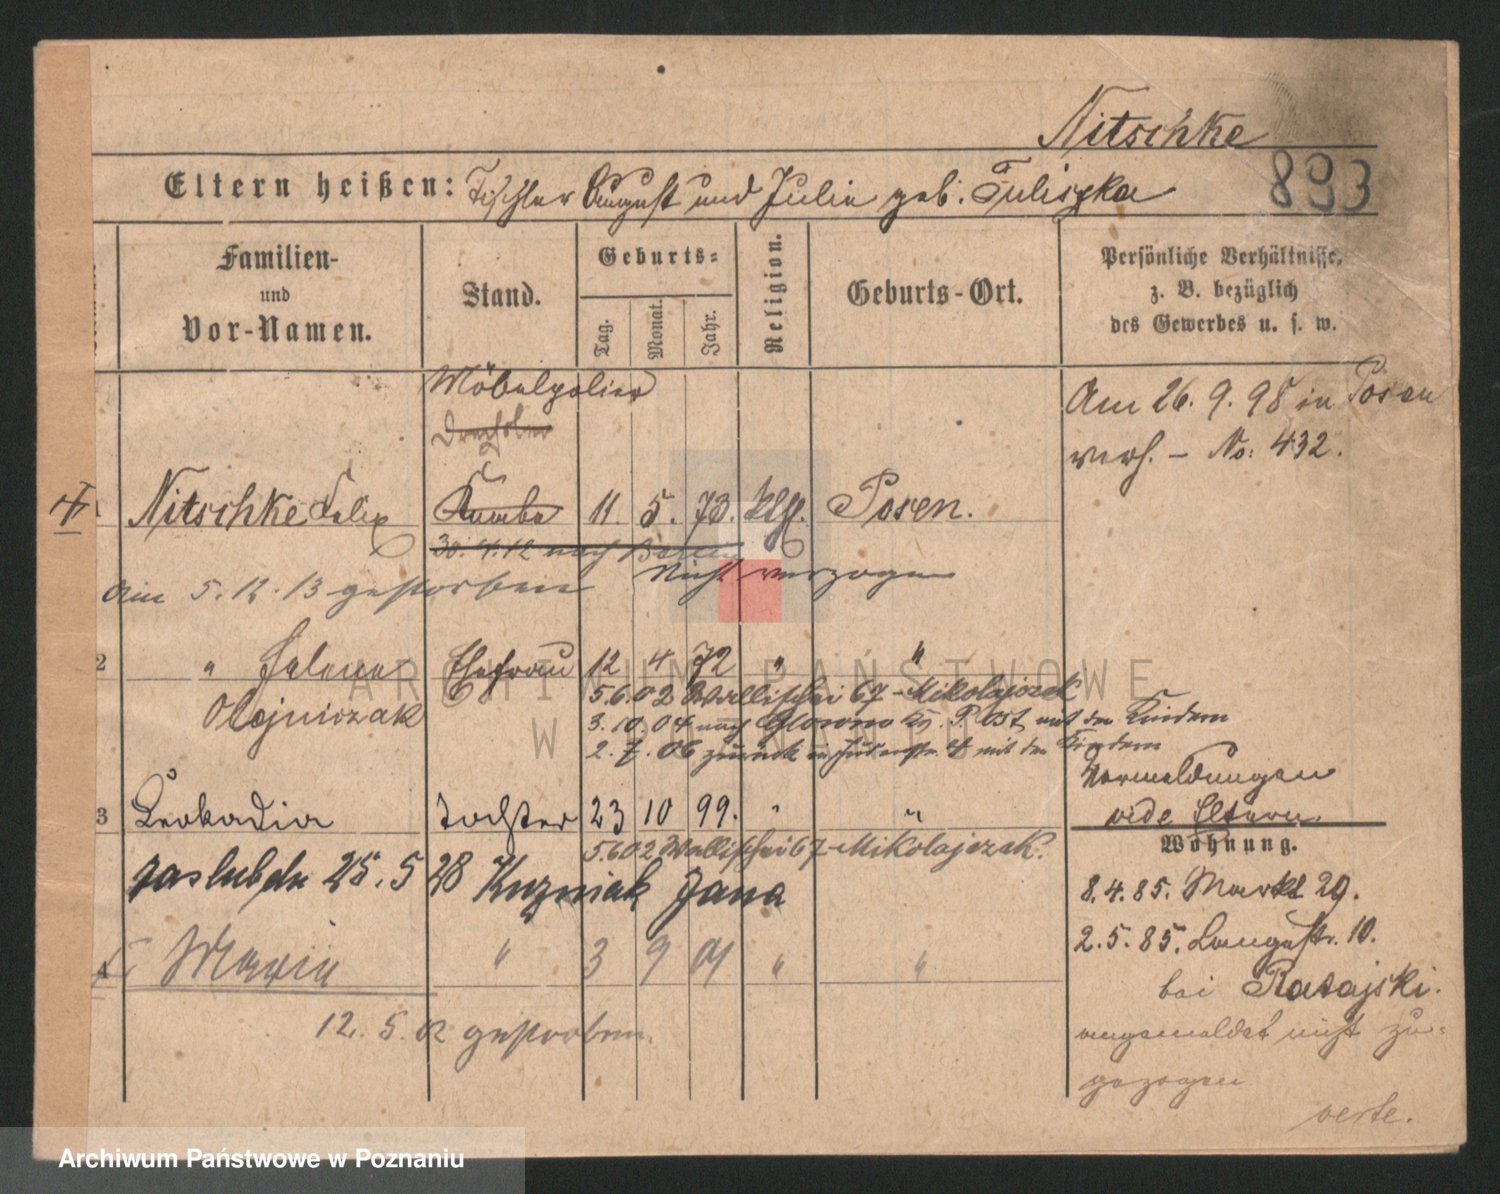 Nitschke
893
Eltern heißen: Tischler August und Julie geb. Tuliszka
Familien- und Vor-Namen.
Stand.
Geburts-
Tag.
Monat.
Jahr.
Religion.
Geburts-Ort.
Persönliche Verhältnisse,
z. B. bezüglich
des Gewerbes u. s. w.
Möbelpolier
Drechsler
Am 26. 9. 98 in Posen
verh. – No: 432.
1 Nitschke Felix Knabe 11. 5. 73. kth. Posen.
30.4.12 nach
nicht verzogen
am 5.12.13 gestorben
2 " Helene Ehefrau 12 4 72 " "
Olejniczak
5.6.02 Wallischei 67 - Mikolajczak
3.10.04 nach Glowno Kr. P. Ost mit den Kindern
2.7.06 zurück mit den Kindern
Vermeldungen
vide Eltern.
3 Leokadia Tochter 23 10 99. " "
5.6.02 Wallischei 67 - Mikolajczak.
zaslubila 25.5 28 Kuzniak Jana
Wohnung.
8.4.85. Markt 29.
2.5.85. Langestr. 10.
bei Ratajski.
angemeldet nicht zu-
gezogen
verte.
4 Marie " 3 9 01 " "
12. 5. 02 gestorben.
ARCHIWUM PAŃSTWOWE
W POZNANIU
Archiwum Państwowe w Poznaniu